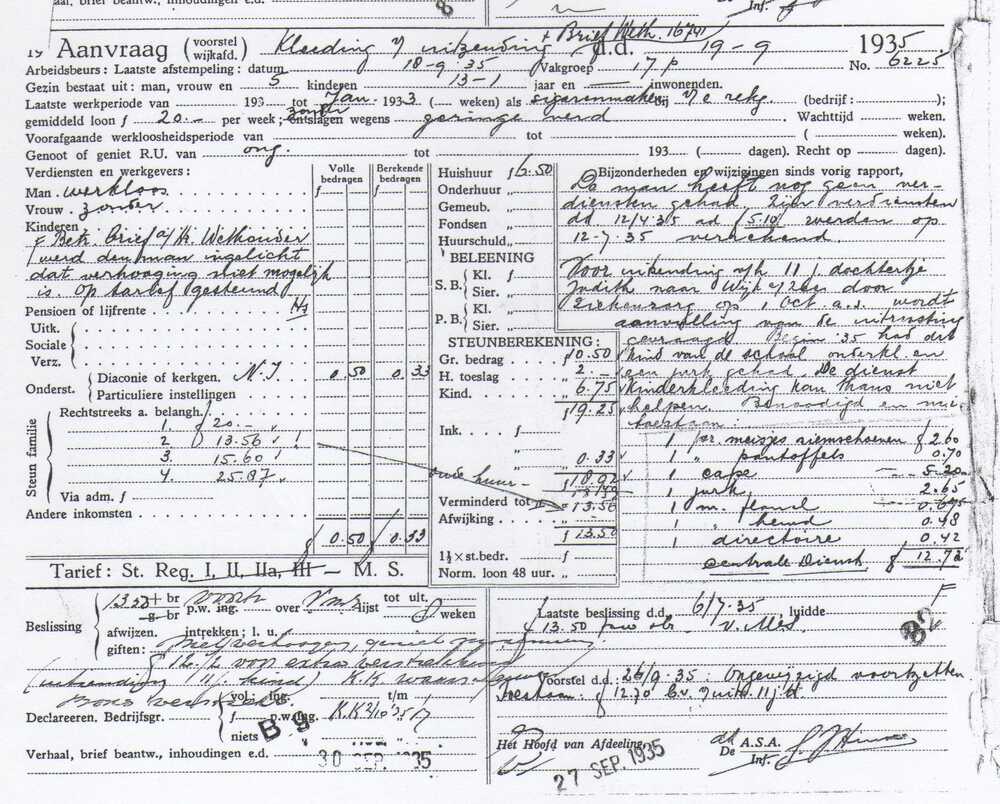 aal, brief beantw., inhoudingen e.d.
Inf.
19 Aanvraag (voorstel wijkafd.) Kleeding v/ uitzending + Brief Weth. 16741 d.d. 19-9 1935
Arbeidsbeurs: Laatste afstempeling: datum 18-9-35 Vakgroep 17 p No. 6225
Gezin bestaat uit: man, vrouw en 5 kinderen 13-1 jaar en — inwonenden.
Laatste werkperiode van 193 tot Jan. 1933 ( weken) als sigarenmaker bij v/e rekg. (bedrijf: );
gemiddeld loon f 20.- per week; zonder ontslagen wegens geringe verd Wachttijd weken.
Voorafgaande werkloosheidsperiode van tot ( weken).
Genoot of geniet R.U. van ong. tot 193 ( dagen). Recht op dagen).
Verdiensten en werkgevers:
Volle bedragen
Berekende bedragen
Man. werkloos
Vrouw. zonder
Kinderen
Betr. brief a/ H. Wethouder
werd den man ingelicht
dat verhooging niet mogelijk
is. Op tarief gesteund
Pensioen of lijfrente
Uitk.
Sociale
Verz.
Onderst. Diaconie of kerkgen. N.I. 0.50 0.33
Particuliere instellingen
Steun familie
Rechtstreeks a. belangh. f
1. 20.-
2 13.56 !
3. 15.60
4. 25.87
Via adm. f
Andere inkomsten
f 0.50 f 0.33
Tarief: St. Reg. I, II, IIa, III — M. S.
Huishuur f 6.50
Onderhuur „
Gemeub. „
Fondsen „
Huurschuld „
BELEENING
S.B. Kl. f
Sier. „
P.B. Kl. „
Sier. „
STEUNBEREKENING:
Gr. bedrag f 10.50
H. toeslag „ 2.-
Kind. „ 6.75
f 19.25
Ink. f
„ 0.33
f 18.92
Verminderd tot = 13.56
Afwijking „
f 13.50
1½ × st.bedr. f
Norm. loon 48 uur. „
Bijzonderheden en wijzigingen sinds vorig rapport,
De man heeft nog geen ver-
diensten gehad. Zijn verdiensten
dd 12/4 35 ad (5.10) werden op
12-7 35 verrekend.
Voor uitzending v/h 11 j. dochtertje
Judith naar Wijk a/Zee door
Ziekenzorg op 1 Oct. a.s. wordt
aanvulling van de uitrusting
gevraagd. Begin '35 had dit
kind van de school onderkl en
een jurk gehad. De dienst
kinderkleeding kan thans niet
helpen. Benoodigd en mi
toestaan:
1 pr. meisjes riemschoenen f 2.60
1 „ pantoffels 0.70
1 cape 5.20
1 jurk 2.65
1 m. flanel
1 „ hemd 0.48
1 directoire 0.42
Centrale Dienst f 12.72
Beslissing
13.50 + br p.w. ing. over lijst tot ult. weken
g. br
afwijzen. intrekken; l. u.
giften:
extra verstrekking
(uitzending 11 j. kind)
Declareeren. Bedrijfsgr. vol: ing. t/m
f p.w. ing. K.K 2/10 '35
niets
B 9
Verhaal, brief beantw., inhoudingen e.d.
30 SEP. 1935
Laatste beslissing d.d. 6/7 35 luidde
f 13.50 pw
v. Mes.
B2
Voorstel d.d.: 26/9 35: Ongewijzigd voortzetten
toestaan: f 12.70
Het Hoofd van Afdeeling,
27 SEP. 1935
De A.S.A.
Inf.